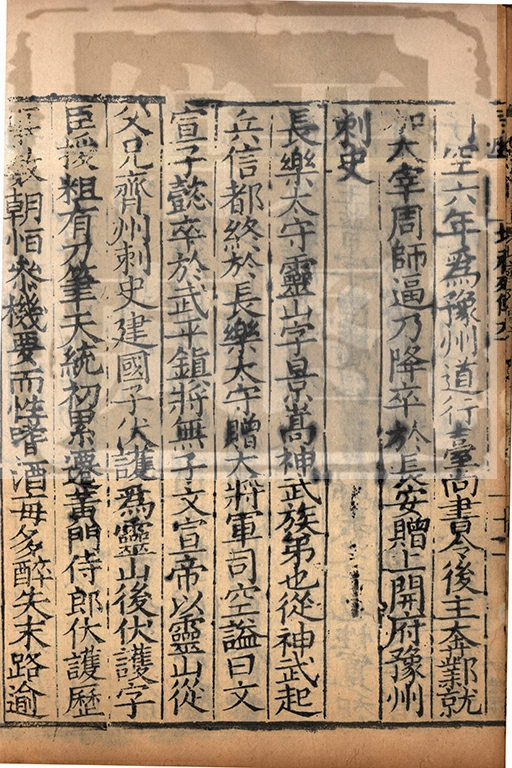 空六年爲豫州道行臺尚書令後主奔鄴就
加太宰周師逼乃降卒於長安贈上開府豫州
刺史
長樂太守靈山字景嵩神武族弟也從神武起
兵信都終於長樂太守贈大將軍司空謚曰文
宣子懿卒於武平鎮將無子文宣帝以靈山從
父兄齊州刺史建國子伏護爲靈山後伏護字
臣援粗有刀筆天統初累遷黃門侍郎伏護歷
事數朝恒叅機要而性嗜酒每多醉失末路逾